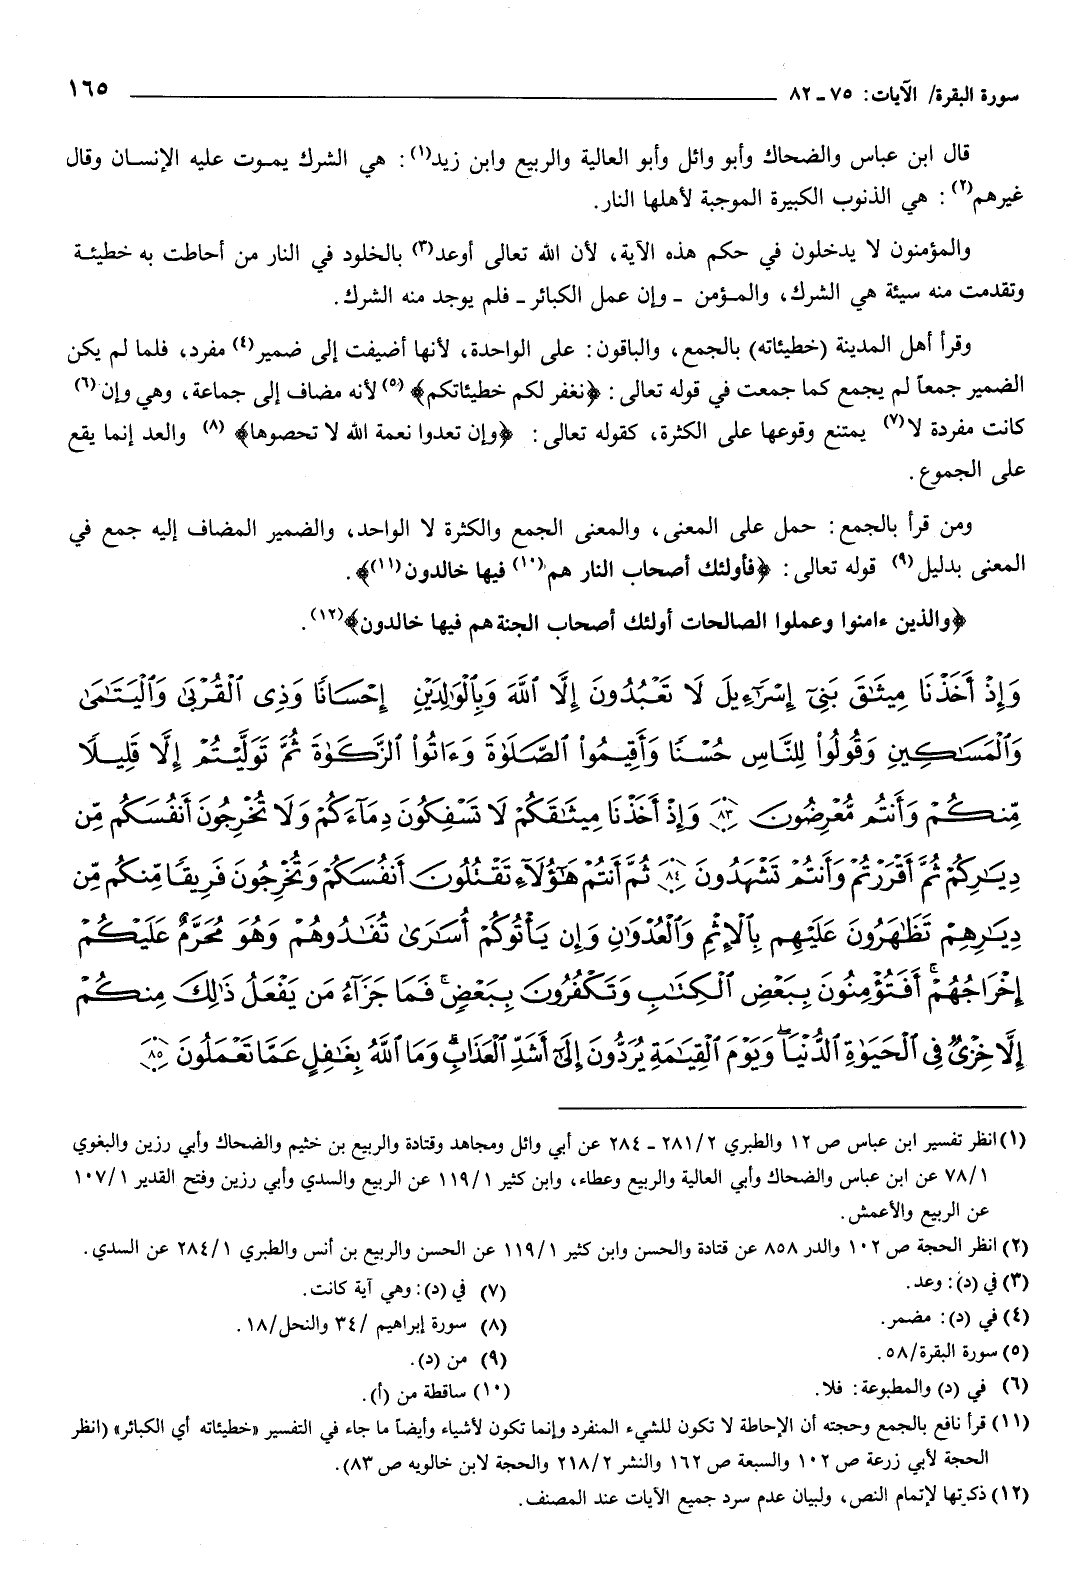 سورة البقرة/ الآيات: ٧٥ ـ ٨٢ ١٦٥
قال ابن عباس والضحاك وأبو وائل وأبو العالية والربيع وابن زيد(١): هي الشرك يمـوت عليه الإنسـان وقال
غيرهم(٢): هي الذنوب الكبيرة الموجبة لأهلها النار.
والمؤمنون لا يدخلون في حكم هذه الآية، لأن الله تعالى أوعد(٣) بالخلود في النار من أحاطت به خطيئـة
وتقدمت منه سيئة هي الشرك، والمـؤمن ـ وإن عمل الكبائر ـ فلم يوجد منه الشرك.
وقرأ أهل المدينة (خطيئاته) بالجمع، والباقون: على الواحدة، لأنها أضيفت إلى ضمير(٤) مفرد، فلما لم يكن
الضمير جمعاً لم يجمع كما جمعت في قوله تعالى: ﴿نغفر لكم خطيئاتكم﴾ (٥) لأنه مضاف إلى جماعة، وهي وإن(٦)
كانت مفردة لا(٧) يمتنع وقوعها على الكثرة، كقوله تعالى: ﴿وإن تعدوا نعمة الله لا تحصوها﴾ (٨) والعد إنما يقع
على الجموع.
ومن قرأ بالجمع: حمل على المعنى، والمعنى الجمع والكثرة لا الواحد، والضمير المضاف إليه جمع في
المعنى بدليل(٩) قوله تعالى: ﴿فأولئك أصحاب النار هم(١٠) فيها خالدون(١١)﴾.
﴿والذين ءامنوا وعملوا الصالحات أولئك أصحاب الجنة هم فيها خالدون﴾(١٢).
وَإِذْ أَخَذْنَا مِيثَٰقَ بَنِىٓ إِسْرَٰٓءِيلَ لَا تَعْبُدُونَ إِلَّا ٱللَّهَ وَبِٱلْوَٰلِدَيْنِ إِحْسَانًا وَذِى ٱلْقُرْبَىٰ وَٱلْيَتَٰمَىٰ
وَٱلْمَسَٰكِينِ وَقُولُوا۟ لِلنَّاسِ حُسْنًا وَأَقِيمُوا۟ ٱلصَّلَوٰةَ وَءَاتُوا۟ ٱلزَّكَوٰةَ ثُمَّ تَوَلَّيْتُمْ إِلَّا قَلِيلًا
مِّنكُمْ وَأَنتُم مُّعْرِضُونَ ٨٣ وَإِذْ أَخَذْنَا مِيثَٰقَكُمْ لَا تَسْفِكُونَ دِمَآءَكُمْ وَلَا تُخْرِجُونَ أَنفُسَكُم مِّن
دِيَٰرِكُمْ ثُمَّ أَقْرَرْتُمْ وَأَنتُمْ تَشْهَدُونَ ٨٤ ثُمَّ أَنتُمْ هَٰٓؤُلَآءِ تَقْتُلُونَ أَنفُسَكُمْ وَتُخْرِجُونَ فَرِيقًا مِّنكُم مِّن
دِيَٰرِهِمْ تَظَٰهَرُونَ عَلَيْهِم بِٱلْإِثْمِ وَٱلْعُدْوَٰنِ وَإِن يَأْتُوكُمْ أُسَٰرَىٰ تُفَٰدُوهُمْ وَهُوَ مُحَرَّمٌ عَلَيْكُمْ
إِخْرَاجُهُمْ ۚ أَفَتُؤْمِنُونَ بِبَعْضِ ٱلْكِتَٰبِ وَتَكْفُرُونَ بِبَعْضٍ ۚ فَمَا جَزَآءُ مَن يَفْعَلُ ذَٰلِكَ مِنكُمْ
إِلَّا خِزْىٌ فِى ٱلْحَيَوٰةِ ٱلدُّنْيَا ۖ وَيَوْمَ ٱلْقِيَٰمَةِ يُرَدُّونَ إِلَىٰٓ أَشَدِّ ٱلْعَذَابِ ۗ وَمَا ٱللَّهُ بِغَٰفِلٍ عَمَّا تَعْمَلُونَ ٨٥
(١) انظر تفسير ابن عباس ص ١٢ والطبري ٢/ ٢٨١ ـ ٢٨٤ عن أبي وائل ومجاهد وقتادة والربيع بن خثيم والضحاك وأبي رزين والبغوي
١/ ٧٨ عن ابن عباس والضحاك وأبي العالية والربيع وعطاء، وابن كثير ١/ ١١٩ عن الربيع والسدي وأبي رزين وفتح القدير ١/ ١٠٧
عن الربيع والأعمش.
(٢) انظر الحجة ص ١٠٢ والدر ٨٥٨ عن قتادة والحسن وابن كثير ١/ ١١٩ عن الحسن والربيع بن أنس والطبري ١/ ٢٨٤ عن السدي.
(٣) في (د): وعد.
(٤) في (د): مضمر.
(٥) سورة البقرة/ ٥٨.
(٦) في (د) والمطبوعة: فلا.
(٧) في (د): وهي آية كانت.
(٨) سورة إبراهيم / ٣٤ والنحل/ ١٨.
(٩) من (د).
(١٠) ساقطة من (أ).
(١١) قرأ نافع بالجمع وحجته أن الإحاطة لا تكون للشيء المنفرد وإنما تكون لأشياء وأيضاً ما جاء في التفسير «خطيئاته أي الكبائر» (انظر
الحجة لأبي زرعة ص ١٠٢ والسبعة ص ١٦٢ والنشر ٢/ ٢١٨ والحجة لابن خالويه ص ٨٣).
(١٢) ذكرتها لإتمام النص، ولبيان عدم سرد جميع الآيات عند المصنف.